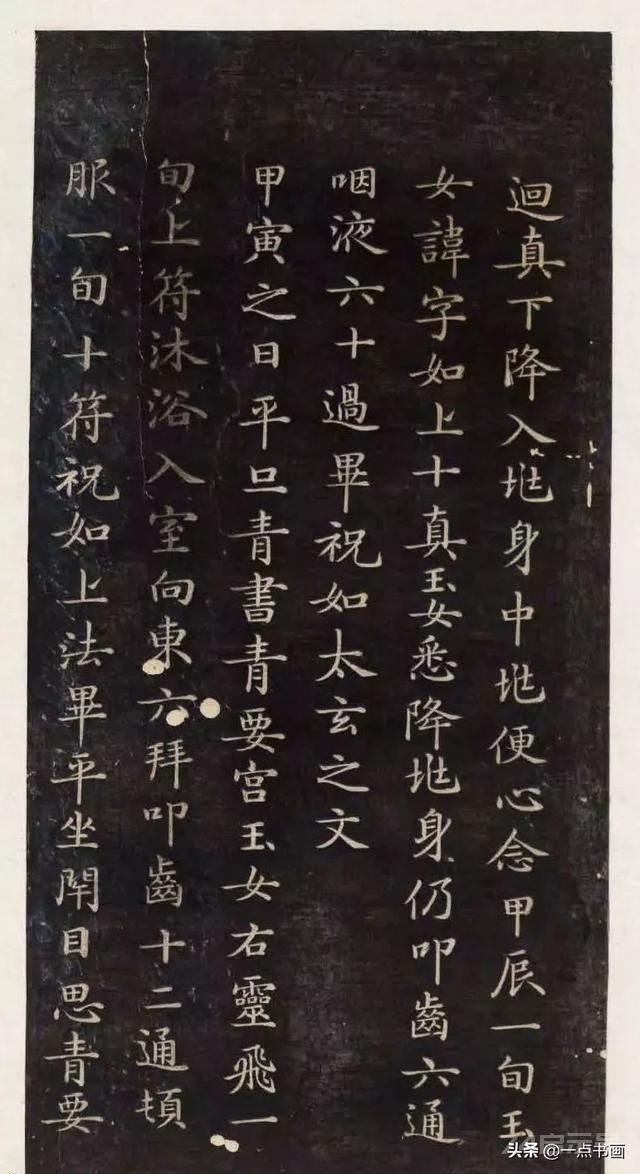 迴真下降入兆身中兆便心念甲辰一旬玉
女諱字如上十真玉女悉降兆身仍叩齒六通
咽液六十過畢祝如太玄之文
甲寅之日平旦青書青要宮玉女右靈飛一
旬上符沐浴入室向東六拜叩齒十二通頓
服一旬十符祝如上法畢平坐閉目思青要
头条 @一点书画